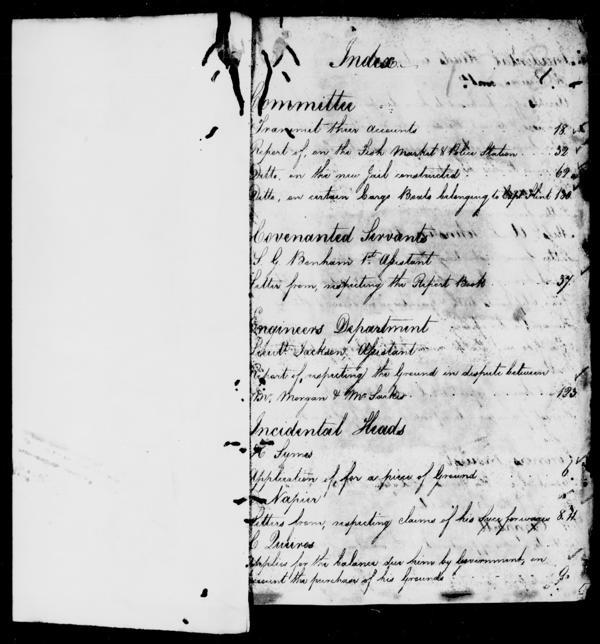 Index
Committee
Transmit their accounts 18
Report of, on the Fish Market & Police Station 32
Ditto, on the new Jail constructed 62
Ditto, on certain Cargo Boats belonging to Capt Flint 130
Covenanted Servants
S G Bonham 1st Assistant
Letter from, respecting the Report Book 37
Engineers Department
Lieutt Jackson, Assistant
Report of, respecting the Ground in dispute between
Mr. Morgan & Mr Sarkies 133
Incidental Heads
Symes
Application of, for a piece of Ground 6
Napier
Letters from, respecting claims of his for wages 8.
Queiros
Applies for the balance due him by Government, on
account the purchase of his Grounds 9